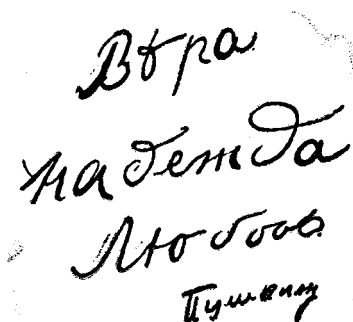 Вѣра
надежда
Любовь
Пушкинъ